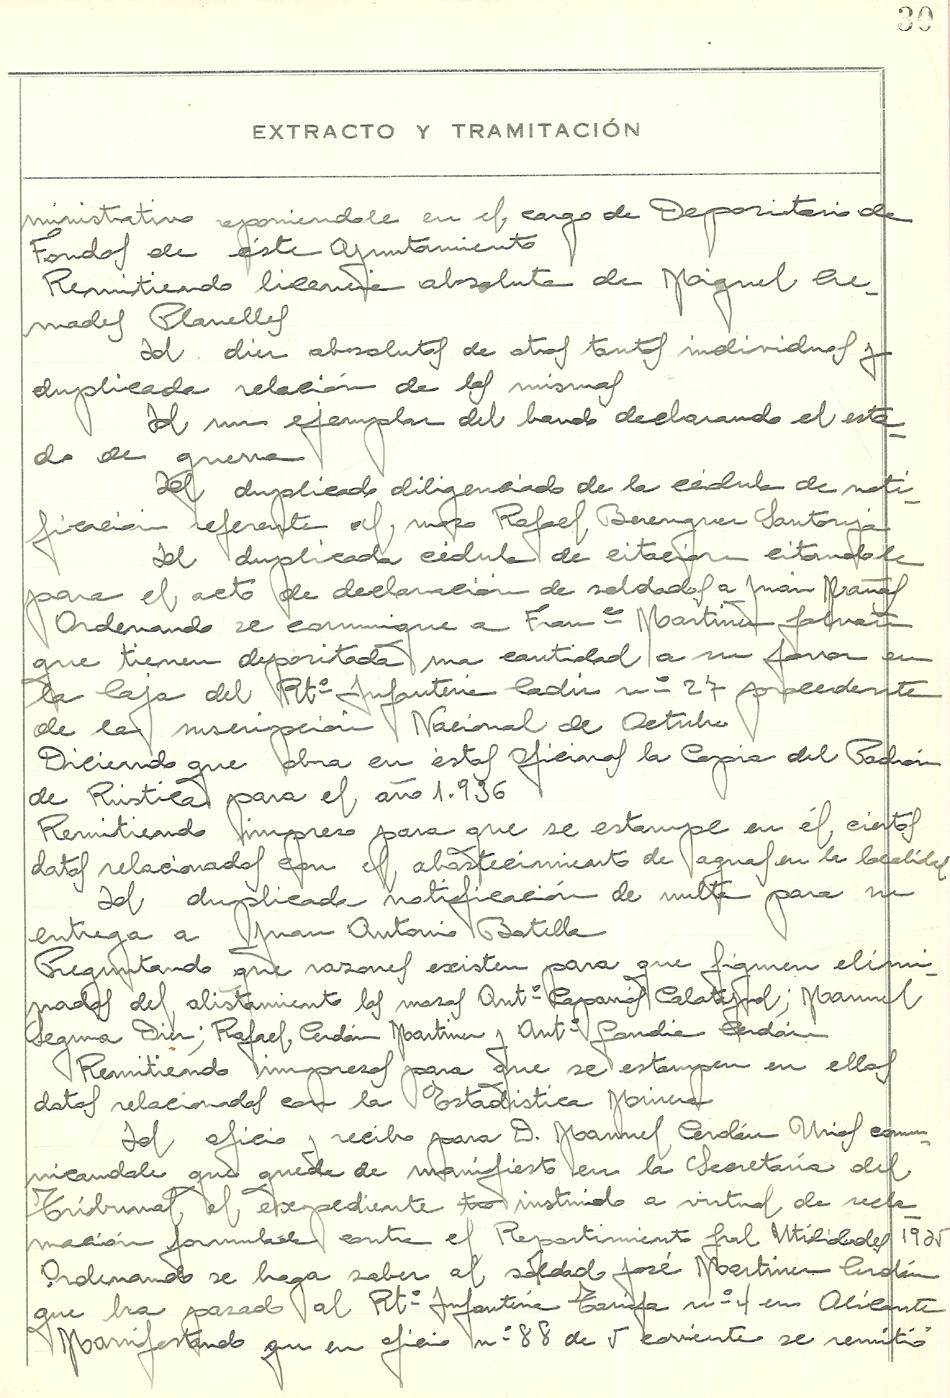 30
EXTRACTO Y TRAMITACIÓN
ministrativo reponiendole en el cargo de Depositario de
Fondos de éste Ayuntamiento
Remitiendo licencia absoluta de Miguel Cre-
mades Planelles
Id. diez absolutas de otros tantos individuos y
duplicada relación de los mismos
Id un ejemplar del bando declarando el esta-
do de guerra
Id duplicado diligenciado de la cédula de noti-
ficación referente al mozo Rafael Berenguer Santonja
Id duplicada cédula de citacion citandole
para el acto de declaración de soldados a Juan Mañas
Ordenando se comunique a Franco Martinez
que tienen depositada una cantidad a su favor en
la Caja del Rtº Infanteria Cadiz nº 27 procedente
de la suscripción Nacional de Octubre
Diciendo que obra en éstas oficinas la Copia del Padrón
de Rústica para el año 1.936
Remitiendo impreso para que se estampe en él, ciertos
datos relacionados con el abastecimiento de aguas en la localidad
Id duplicada notificación de multa para su
entrega a Juan Antonio Botella
Preguntando que razones existen para que figuren elimi-
nados del alistamiento los mozos Antº Calatayud; Manuel
Segura Diez; Rafael Cerdán Martinez y Antº Candia Cerdán
Remitiendo impresos para que se estampen en ellos
datos relacionados con la Estadística Minera
Id oficio y recibo para D. Manuel Cerdán Urios comu-
nicandole que queda de manifiesto en la Secretaría del
Tribunal, el expediente instruido a virtud de recla-
mación formulada contra el Repartimiento gral Utilidades 1935
Ordenando se haga saber al soldado José Martinez Cerdán
que ha pasado al Rtº Infanteria Tarifa nº 4 en Alicante
Manifestando que en oficio nº 88 de 5 corriente se remitió